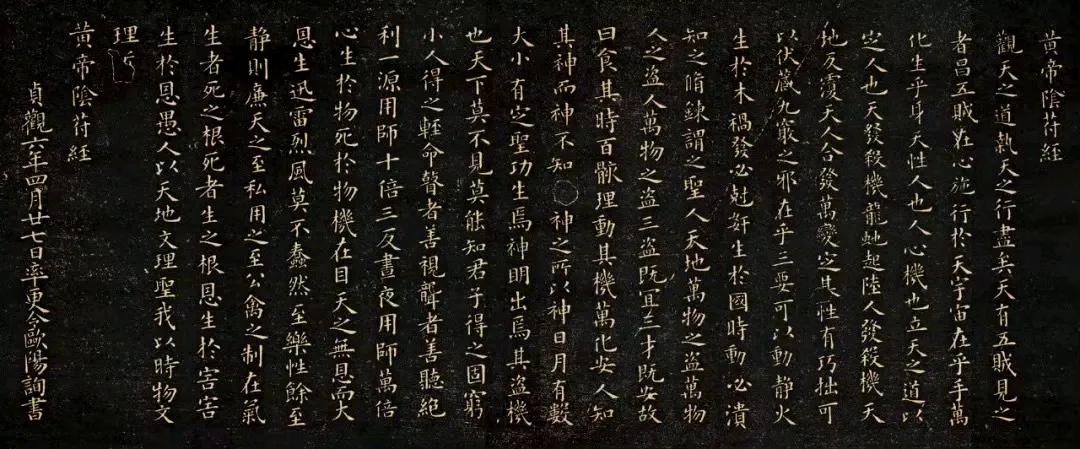 黃帝陰苻經
觀天之道執天之行盡矣天有五賊見之
者昌五賊在心施行於天宇宙在乎手萬
化生乎身天性人也人心機也立天之道以
定人也天發殺機龍虵起陸人發殺機天
地反覆天人合發萬變定其性有巧拙可
以伏藏九竅之邪在乎三要可以動静火
生於木禍發必尅奸生於國時動必潰
知之脩鍊謂之聖人天地萬物之盜萬物
人之盜人萬物之盜三盜既宜三才既安故
曰食其時百骸理動其機萬化安人知
其神而神不知神之所以神日月有數
大小有定聖功生焉神明出焉其盜機
也天下莫不見莫能知君子得之固窮
小人得之輕命瞽者善視聾者善聽絕
利一源用師十倍三反晝夜用師萬倍
心生於物死於物機在目天之無恩而大
恩生迅雷烈風莫不蠢然至樂性餘至
静則廉天之至私用之至公禽之制在氣
生者死之根死者生之根恩生於害害
生於恩愚人以天地文理聖我以時物文
理
黃帝陰苻經
貞觀六年四月廿七日率更令歐陽詢書